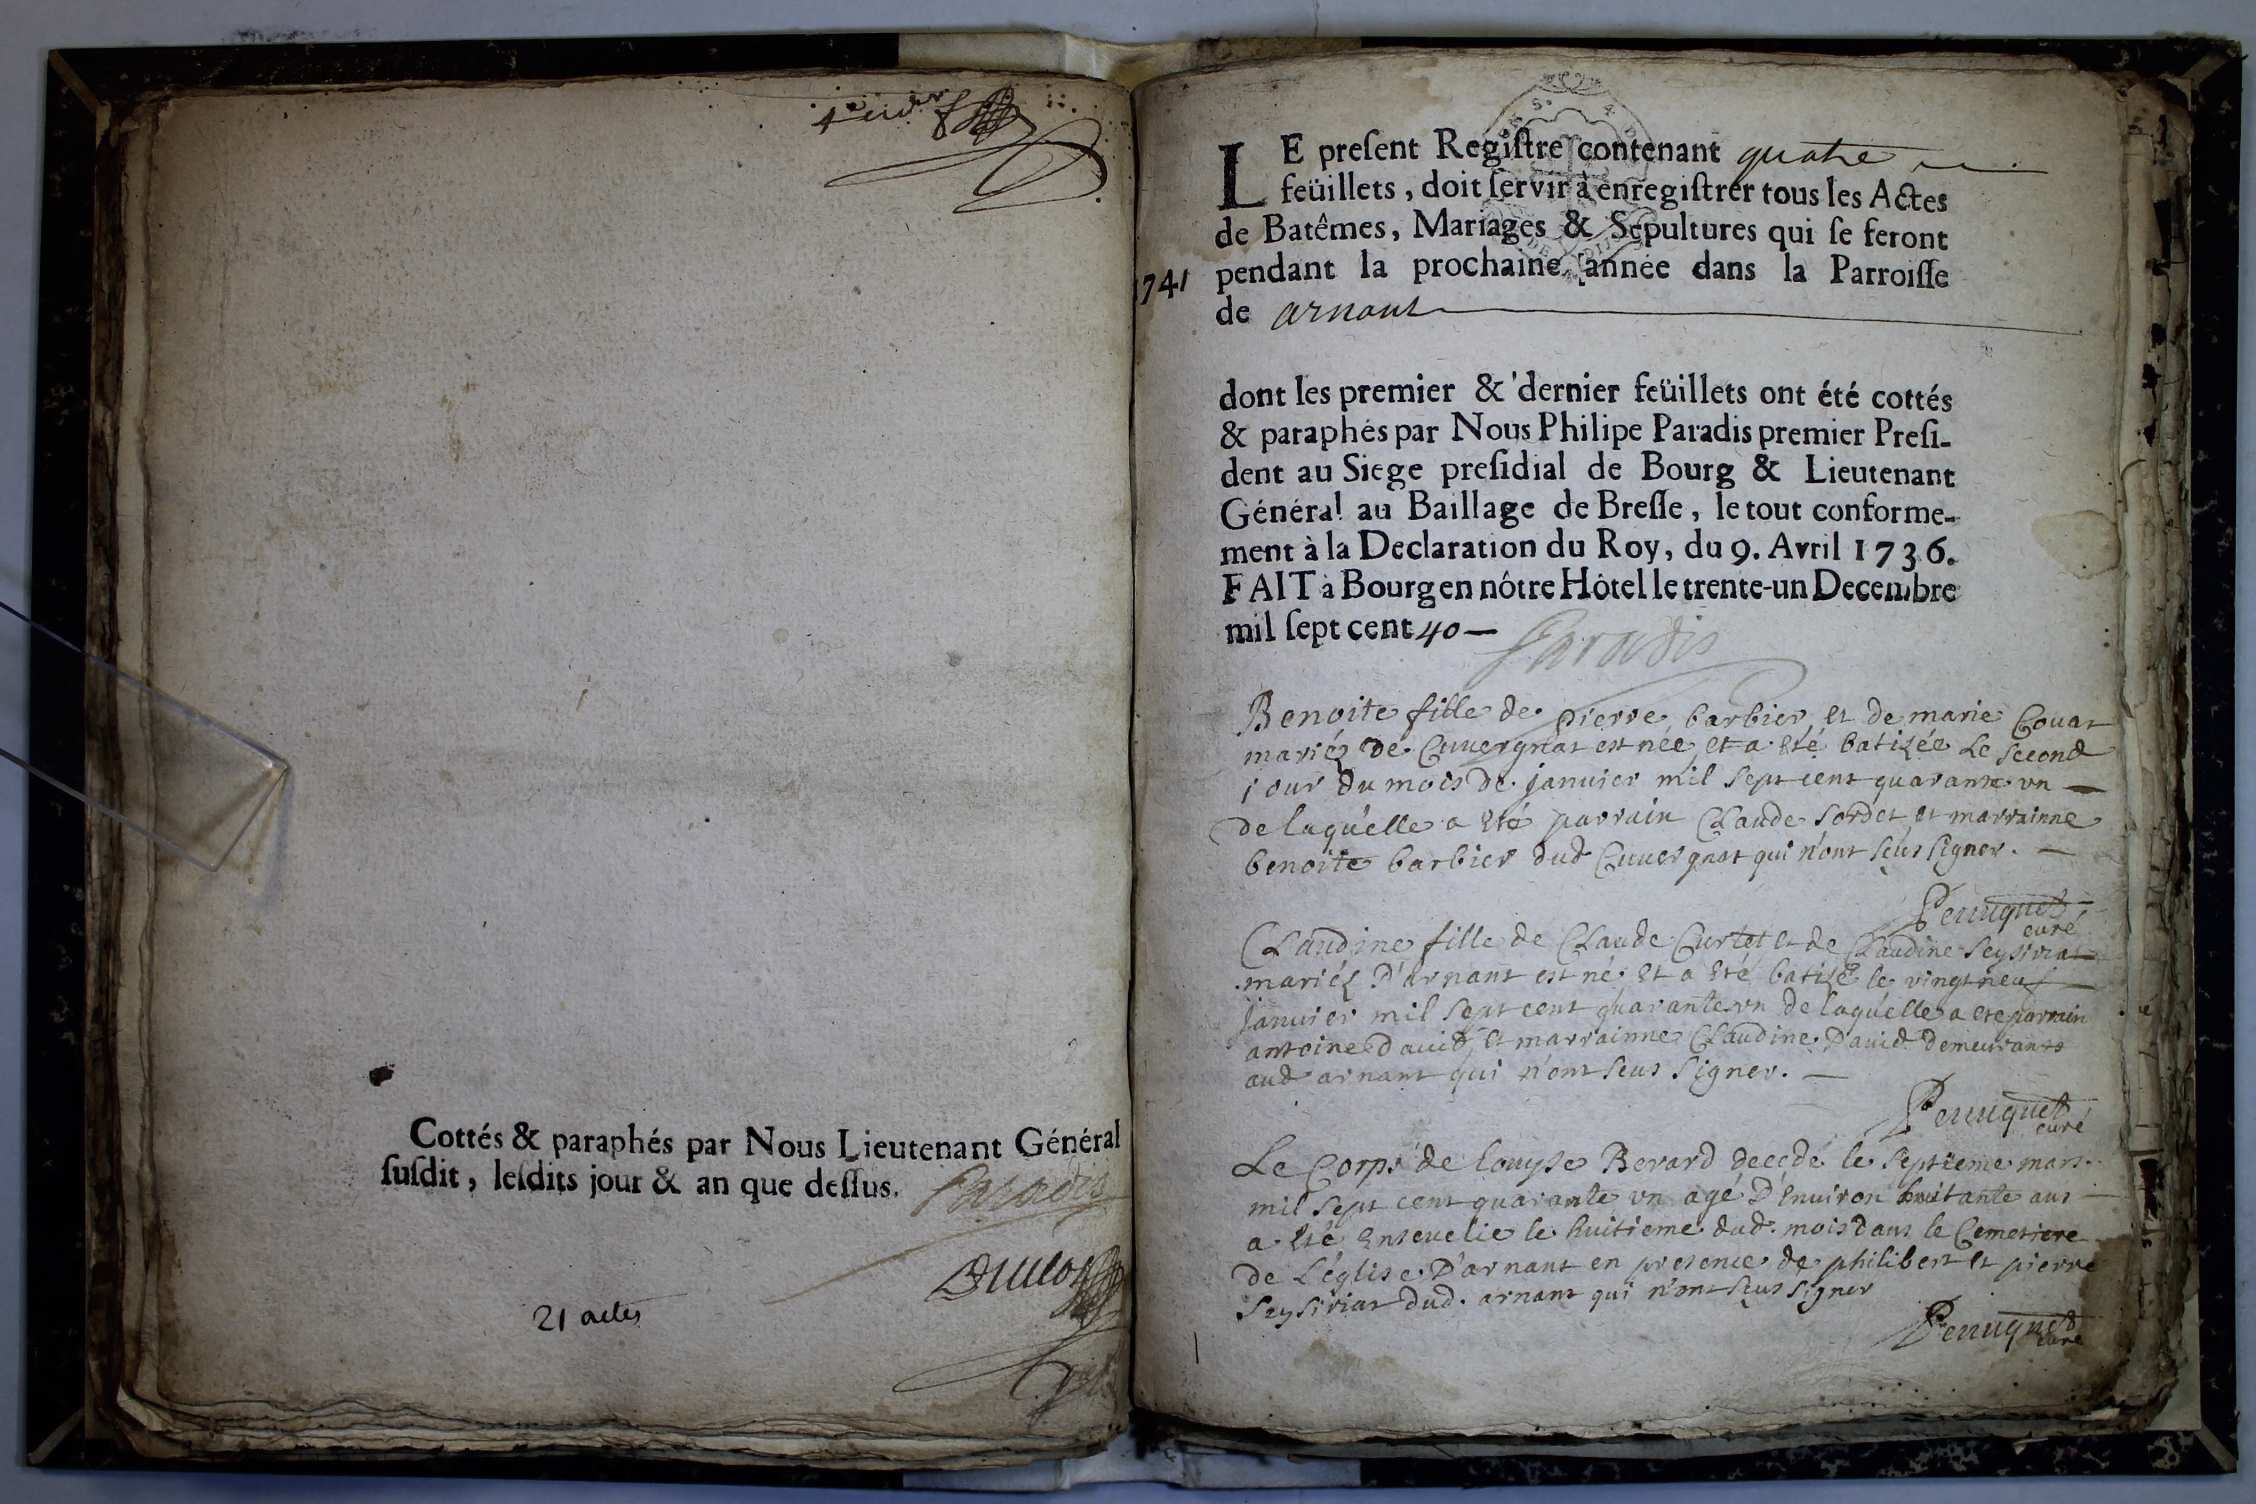 Cottés & paraphés par Nous Lieutenant Général
susdit, lesdits jour & an que dessus.
Paradis
21 actes
LE present Registre contenant quatre
feüillets, doit servir à enregistrer tous les Actes
de Batêmes, Mariages & Sepultures qui se feront
pendant la prochaine année dans la Parroisse
1741
de arnant
dont les premier & dernier feüillets ont été cottés
& paraphés par Nous Philipe Paradis premier Presi-
dent au Siege presidial de Bourg & Lieutenant
Général au Baillage de Bresse, le tout conforme-
ment à la Declaration du Roy, du 9. Avril 1736.
FAIT à Bourg en nôtre Hôtel le trente-un Decembre
mil sept cent 40 —
Paradis
Benoite fille de pierre barbier et de marie Couat
mariéz de Cuvergnat est née et a été batizée le second
jour du mois de janvier mil sept cent quarante un —
de laquélle a été parrain Claude Sordet et marrainne
benoite barbier dud Cuvergnat qui n'ont seus signer. —
Perruquet
curé
Claudine fille de Claude Curtet et de Claudine Seysiriat
mariéz D'arnant est né et a été batizé le vingt neuf —
janvier mil sept cent quarante un de laquélle a ete parrain
antoine David et marrainne Claudine David demeurants
aud arnant qui n'ont seus signer. —
Perruquet
curé
Le Corps de Louyse Berard decedé le septieme mars
mil sept cent quarante un agé D'environ huitante ans —
a été ensevelie le huitieme dud. mois dans le Cemetiere
de L'église D'arnant en presence de philibert et pierre
Seysiriat dud. arnant qui n'ont seus signer
Perruquet
curé